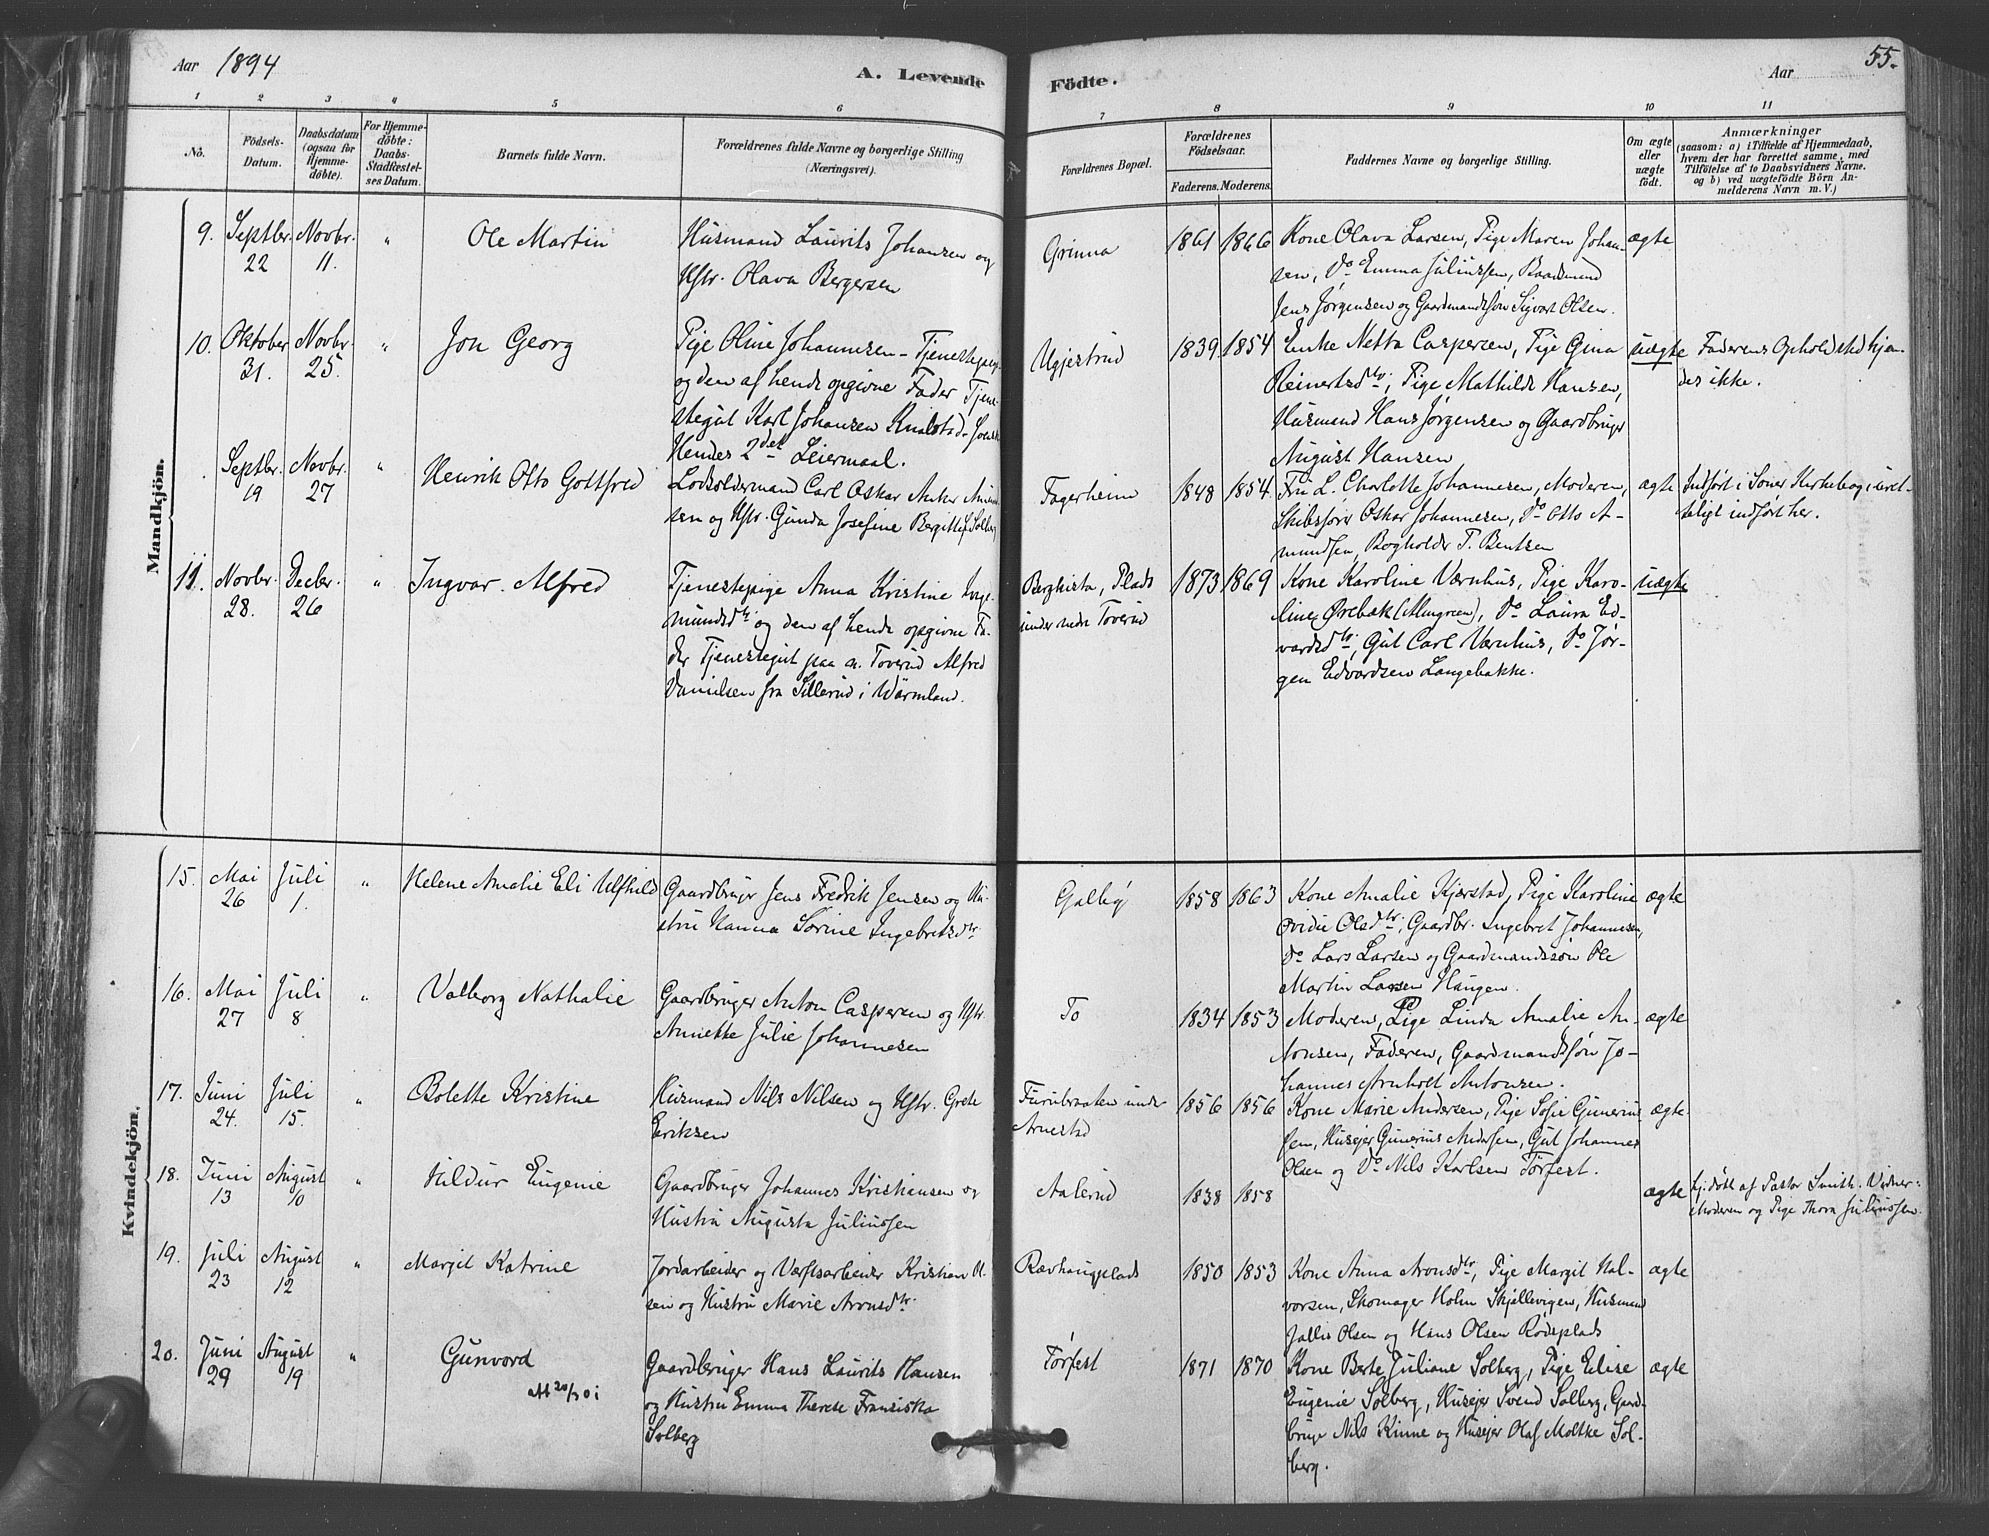 Aar 1894
A. Levende Födte.
Aar
55.
1 2 3 4 5 6 7 8 9 10 11
No.
Födsels-
Datum.
Daabsdatum
(ogsaa for
Hjemme-
døbte).
For Hjemme-
døbte:
Daabs-
Stadfæstel-
ses Datum.
Barnets fulde Navn.
Forældrenes fulde Navne og borgerlige Stilling
(Næringsvei).
Forældrenes Bopæl.
Forældrenes
Födselsaar.
Faderens. Moderens.
Faddernes Navne og borgerlige Stilling.
Om ægte
eller
uægte
født.
Anmærkninger
(saasom: a) i Tilfælde af Hjemmedaab,
hvem der har forrettet samme, med
Tilföielse af to Daabsvidners Navne.
og b) ved uægtefödte Börn An-
melderens Navn m. V.)
Mandkjön.
9. Septbr. 22 Novbr. 11. " Ole Martin
Husmand Laurits Johansen og
Hstr. Olava Bergersen
Grinna
1861 1866
Kone Olava Larsen, Pige Maren Johan-
sen, Do Emma Juliussen, Baadsmand
Jens Jørgensen og Gaardmandssøn Sigvart Olsen.
ægte
10. Oktober 31. Novbr. 25. " Jon Georg
Pige Oline Johannesen - Tjenestepige
og den af hende opgivne Fader Tjene-
stegut Karl Johansen Knalstad
Hendes 2det Leiermaal.
Ugjestrud
1839. 1854
Enke Netta Caspersen, Pige Gina
Reinertsdtr, Pige Mathilde Hansen,
Husmand Hans Jørgensen og Gaardbruger
August Hansen
uægte
Faderens Opholdssted kjen-
des ikke.
Septbr. 19 Novbr. 27 " Henrik Otto Gottfred
Lodsoldermand Carl Oskar Anker Amund-
sen og Hstr. Gunda Josefine Bergitte f. Solberg
Fagerheim
1848 1854.
Fru L. Charlotte Johannesen, Moderen,
Skibsfører Oskar Johannesen, Do Otto A-
mundsen, Bogholder T. Bentsen
ægte
Indført i Soner Kirkebog, uret-
teligt indført her.
11. Novbr. 28. Decbr. 26 " Ingvar Alfred
Tjenestepige Anna Kristine Inge-
mundsdtr og den af hende opgivne Fa-
der Tjenestegut paa n. Toverud Alfred
Danielsen fra Sillerud i Wärmland.
Berghista, Plads
under nedre Toverud
1873 1869
Kone Karoline Værnhus, Pige Karo-
line Ørebæk (Almgreen), Do Laura Ed-
vardsdtr, Gut Carl Værnhus, Do Jør-
gen Edvardsen Langebakke.
uægte
Kvindekjön.
15. Mai 26 Juli 1. " Helene Amalie Eli Ulfhild
Gaardbruger Jens Fredrik Jensen og Hu-
stru Hanna Sørine Ingebretsdtr.
Galby
1858 1863
Kone Amalie Kjærstad, Pige Karoline
Ovidie Olsdtr, Gaardbr. Ingebret Johannesen,
Do Lars Larsen og Gaardmandssøn Ole
Martin Larsen Haugen.
ægte
16. Mai 27 Juli 8 " Valborg Nathalie
Gaardbruger Anton Caspersen og Hstr.
Annette Julie Johannesen
To
1834 1853
Moderen, Pige Linda Amalie An-
tonsen, Faderen, Gaardmandssøn Jo-
hannes Arnholt Antonsen.
ægte
17. Juni 24. Juli 15. " Bolette Kristine
Husmand Nils Nilsen og Hstr. Grete
Eriksen
Furubraaten under
Arnestad
1856 1856
Kone Marie Andersen, Pige Sofie Gunerius-
sen, Husejer Gunerius Andersen, Gut Johannes
Olsen og Do Nils Karlsen Tørfest.
ægte
18. Juni 13 August 10 " Hildur Eugenie
Gaardbruger Johannes Kristiansen og
Hustru Augusta Juliussen
Aalerud
1838 1858
ægte
Hj. døbt af Pastor Smith. Vidner:
Moderen og Pige Thora Juliussen.
19. Juli 23 August 12 " Margit Katrine
Jordarbeider og Værftsarbeider Kristian Ol-
sen og Hustru Marie Aronsdtr
Ravhaugplads
1850 1853
Kone Anna Aronsdtr, Pige Margit Hal-
vorsen, Skomager Holm Skjellevigen, Husmand
Jallis Olsen og Hans Olsen Rodsplads
ægte
20. Juni 29 August 19 " Gunvord
Att 20/10
Gaardbruger Hans Laurits Hansen
og Hustru Emma Therese Franziska
Solberg
Tørfest
1871 1870
Kone Berte Juliane Solberg, Pige Elise
Eugenie Solberg, Husejer Svend Solberg, Gaard-
bruger Nils Kinne og Husejer Olaf Moltke Sol-
berg.
ægte